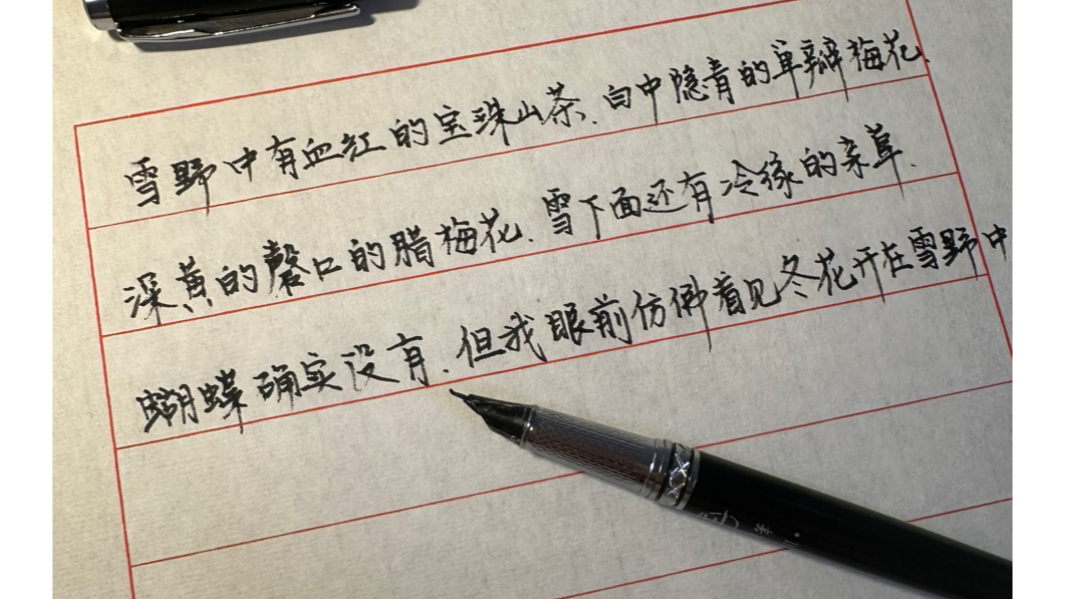 雪野中有血红的宝珠山茶、白中隐青的单瓣梅花、
深黄的磬口的腊梅花、雪下面还有冷绿的亲草、
蝴蝶确实没有、但我眼前仿佛看见冬花开在雪野中